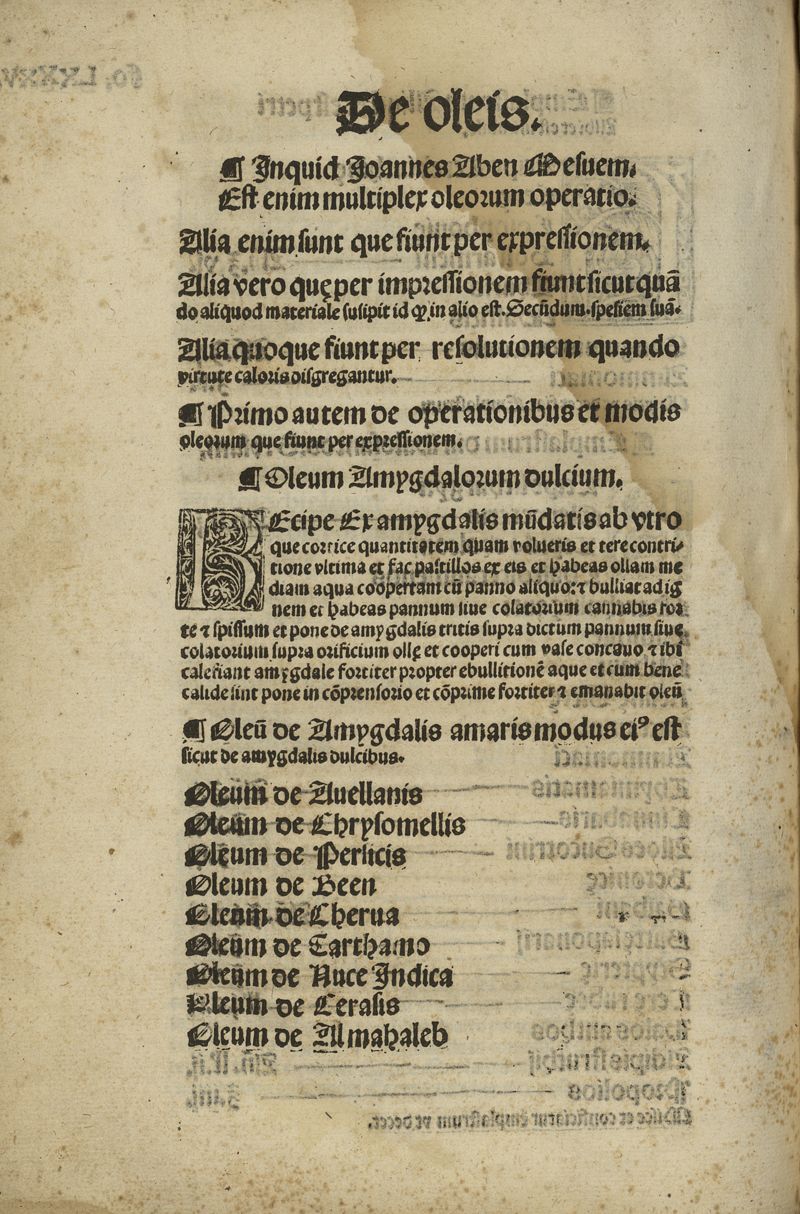 De oleis.
¶ Inquid Joannes Aben Mesuem.
Est enim multiplex oleorum operatio.
Alia enim sunt que fiunt per expressionem.
Alia vero quę per impressionem fiunt sicut quā
do aliquod materiale susipit id qꝫ in alio est. Secūdum. spesiem suā.
Alia quoque fiunt per resolutionem quando
virtute caloris disgregantur.
¶ Primo autem de operationibus et modis
oleorum quę fiunt per expressionem.
¶ Oleum Amygdalorum dulcium.
REcipe Ex amygdalis mūdatis ab vtro
que cortice quantitatem quam volueris et tere contri/
tione vltima et fac pastillos ex eis et habeas ollam me
diam aqua coopertam cū panno aliquo: ⁊ bulliat ad ig
nem et habeas pannum siue colatorium cannabis for
te ⁊ spissum et pone de amygdalis tritis supra dictum pannum siue
colatorium supra orificium ollę et cooperi cum vase concauo ⁊ ibi
calefiant amygdale fortiter propter ebullitionē aque et cum bene
calide sint pone in cōprensorio et cōprime fortiter ⁊ emanabit oleū
¶ Oleū de Amygdalis amaris modus eiꝰ est
sicut de amygdalis dulcibus.
Oleum de Auellanis
Oleum de Chrysomellis
Oleum de Persicis
Oleum de Been
Oleum de Cherua
Oleum de Carthamo
Oleum de Nuce Indica
Oleum de Cerasis
Oleum de Almahaleb